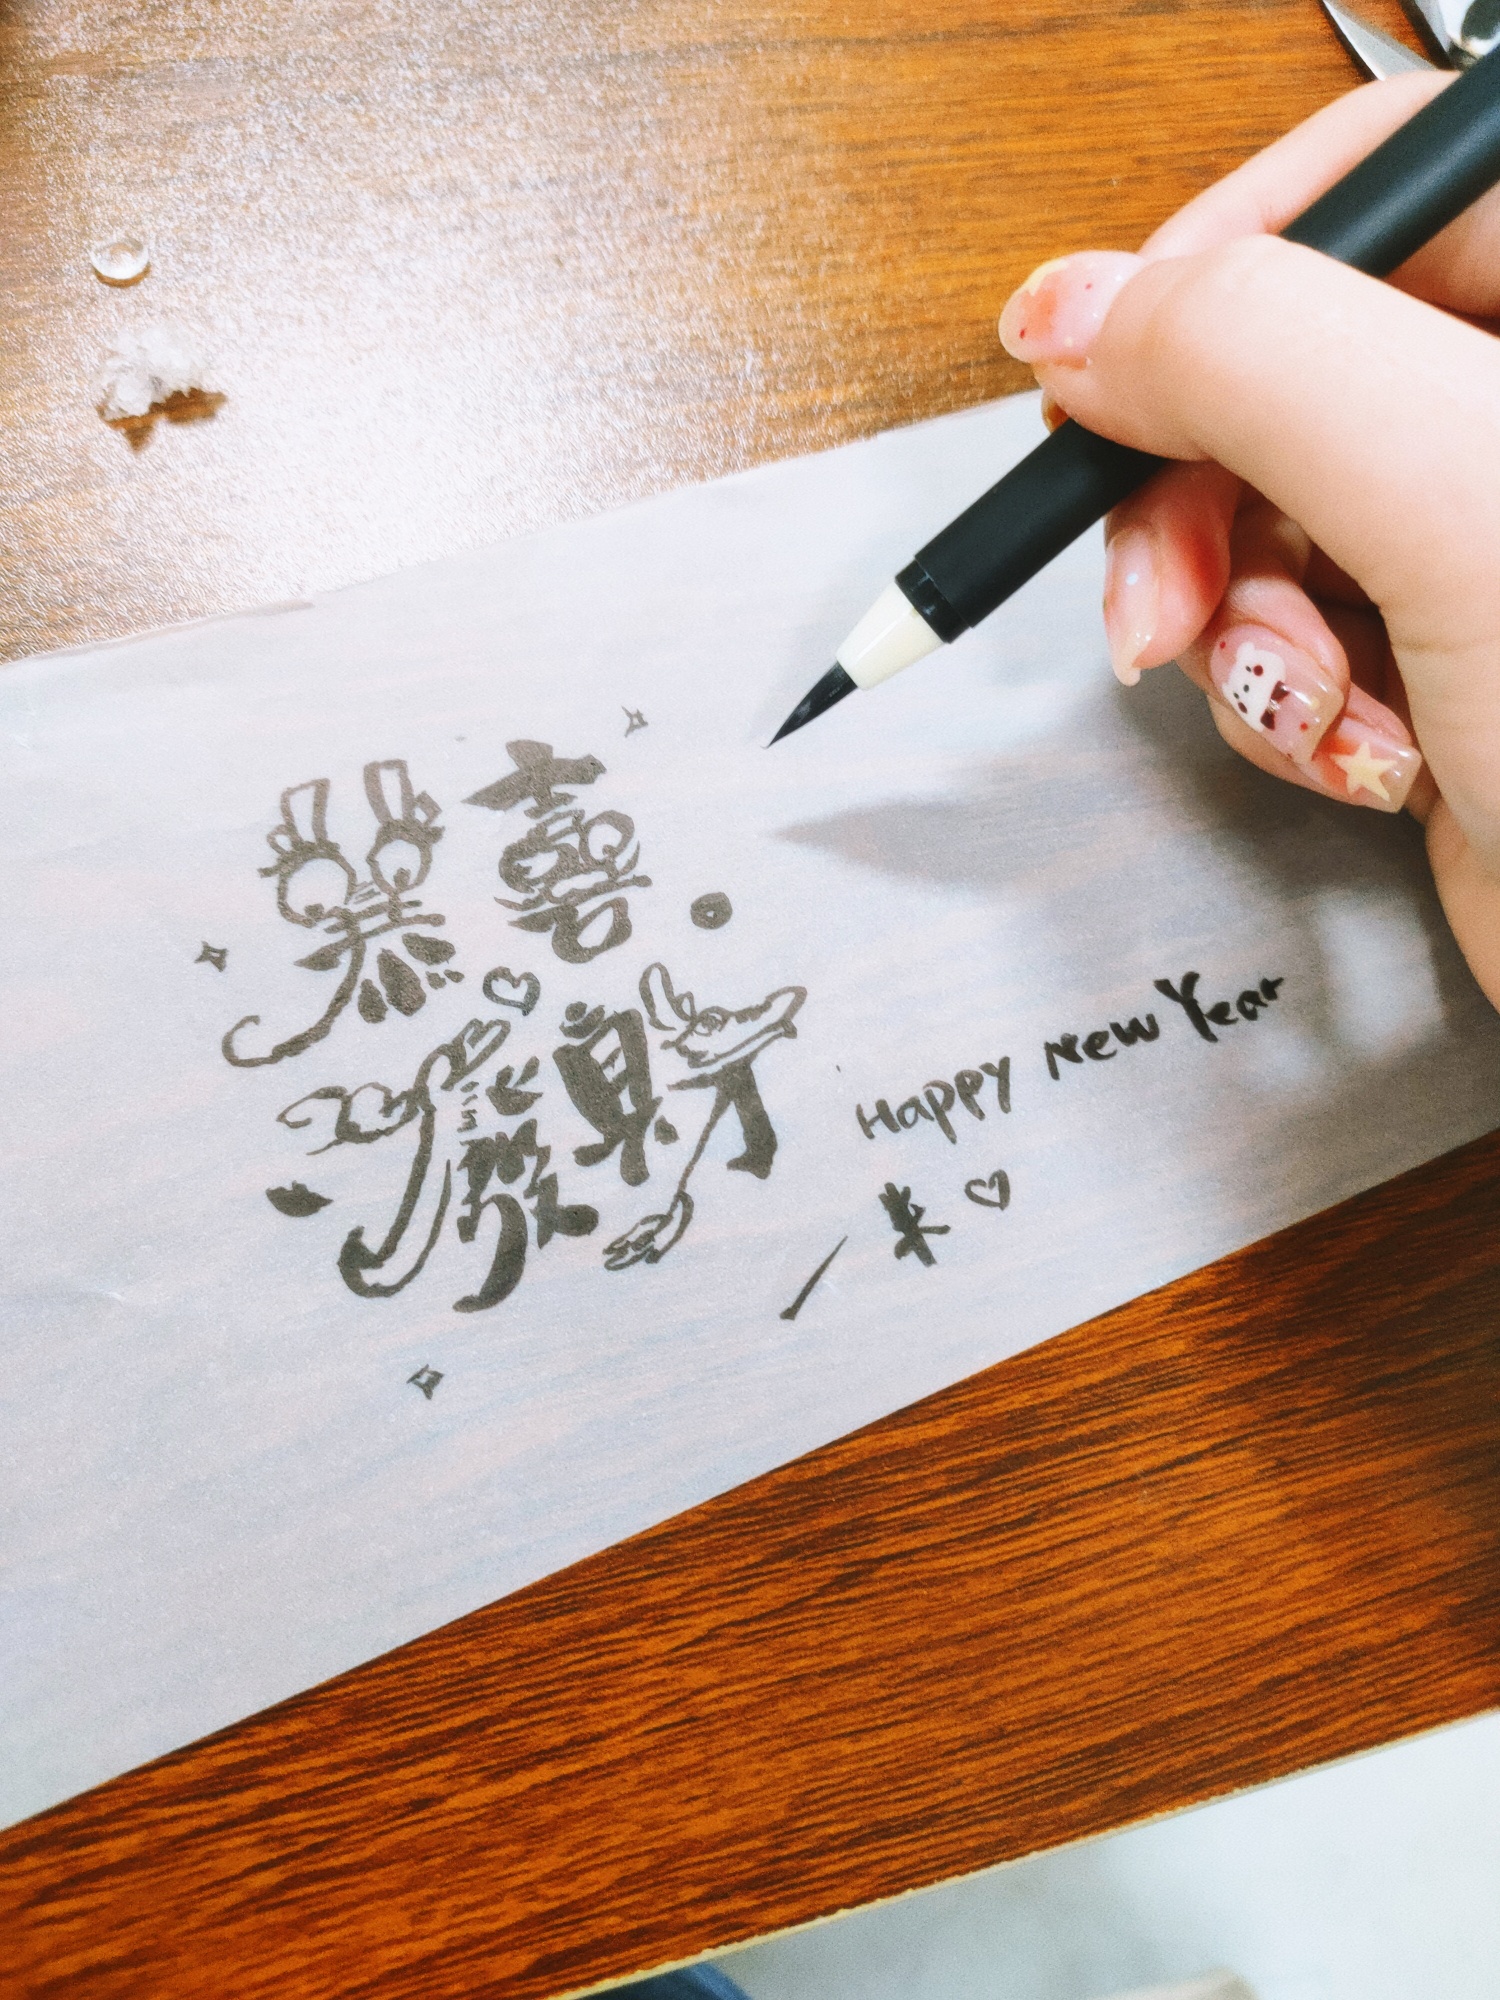 恭喜
發財
Happy New Year